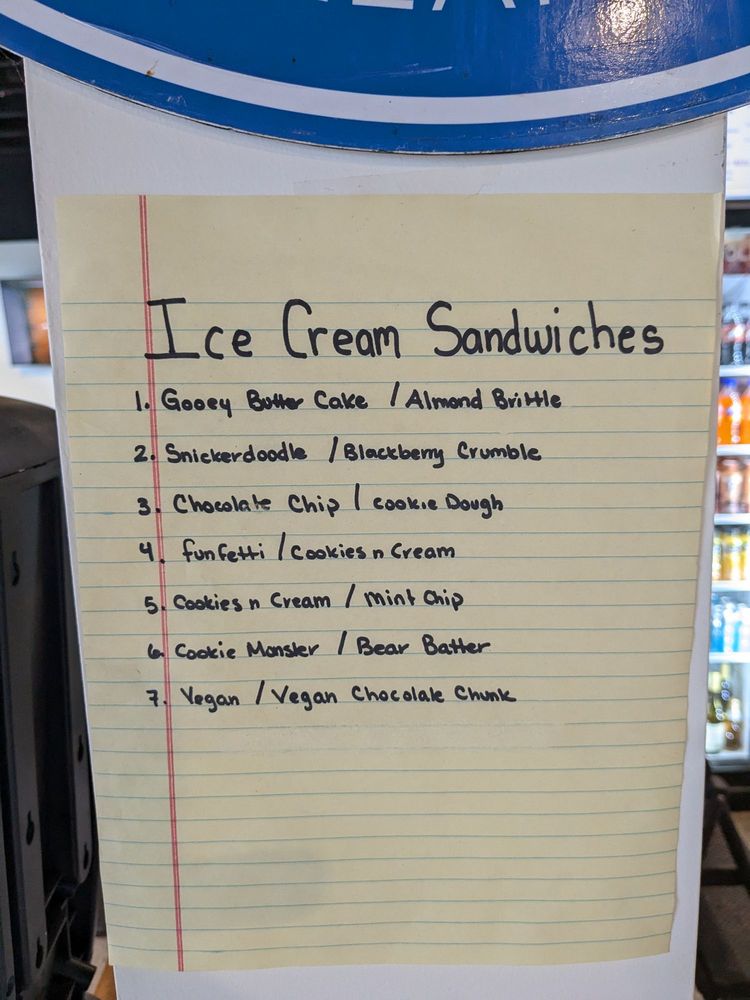 Ice Cream Sandwiches
1. Gooey Butter Cake / Almond Brittle
2. Snickerdoodle / Blackberry Crumble
3. Chocolate Chip / Cookie Dough
4. funfetti / Cookies n Cream
5. Cookies n Cream / Mint Chip
6. Cookie Monster / Bear Batter
7. Vegan / Vegan Chocolate Chunk